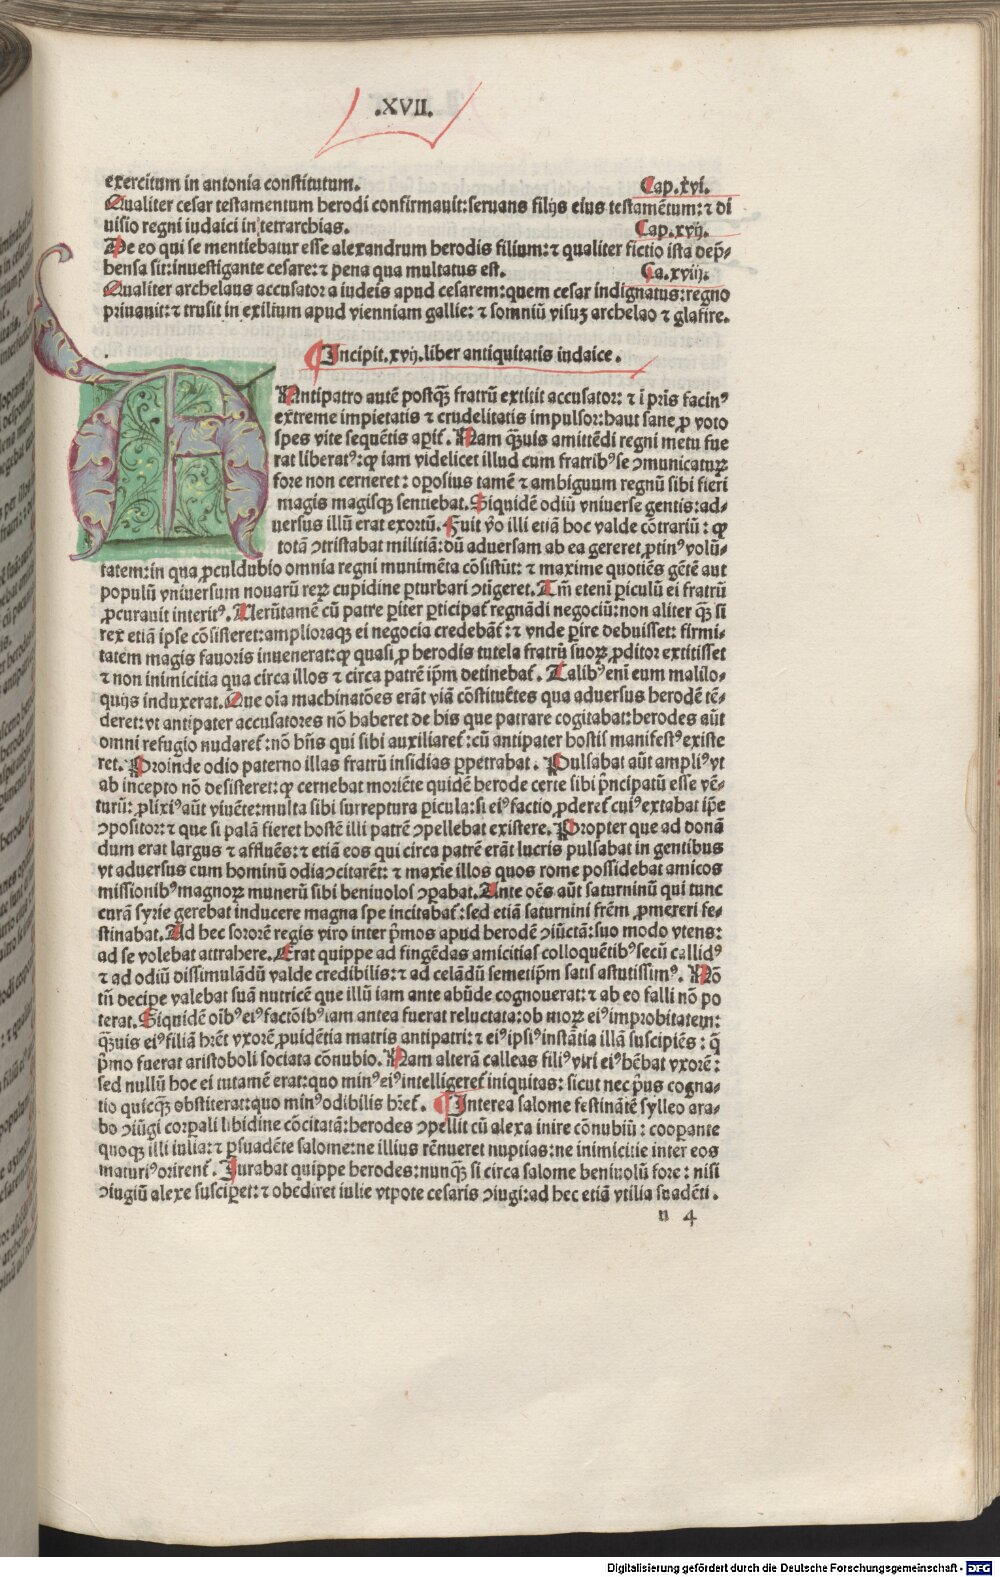 .XVII.
exercitum in antonia constitutum. Cap.xvi.
Qualiter cesar testamentum herodi confirmauit:seruans filijs eius testamētum:⁊ di
uisio regni iudaici in tetrarchias. Cap.xvij.
De eo qui se mentiebatur esse alexandrum herodis filium:⁊ qualiter fictio ista dep̄-
hensa sit:inuestigante cesare:⁊ pena qua multatus est. Ca.xviij.
Qualiter archelaus accusator a iudeis apud cesarem:quem cesar indignatus:regno
priuauit:⁊ trusit in exilium apud vienniam gallie: ⁊ somniū visuꝫ archelao ⁊ glafire.
Incipit.xvij.liber antiquitatis iudaice.
ANtipatro autē postqꝫ fratrū extitit accusator: ⁊ ī pris facinꝰ
extreme impietatis ⁊ crudelitatis impulsor:haut sane ꝓ voto
spes vite sequētis aꝑit᷒. Nam qꝫuis amittēdi regni metu fue
rat liberatꝰ:qꝛ iam videlicet illud cum fratribꝰ se ↄmunicaturꝝ
fore non cerneret: oꝑosius tamē ⁊ ambiguum regnū sibi fieri
magis magisqꝫ sentiebat.Siquidē odiū vniuerse gentis:ad-
uersus illū erat exortū. Fuit v̄o illi etiā hoc valde cōtrariū: qꝛ
totā ↄtristabat militiā:dū aduersam ab ea gereret ꝓtinꝰ volū-
tatem:in qua ꝓculdubio omnia regni munimēta cōsistūt: ⁊ maxime quotiēs gētē aut
populū vniuersum nouarū reꝝ cupidine ꝑturbari ↄtigeret. Tm̄ eteni ꝑiculū ei fratrū
ꝓcurauit interitꝰ. Uerūtamē cū patre ꝑiter ꝑticipat᷒ regnādi negociū:non aliter qꝫ si
rex etiā ipse cōsisteret:amplioraqꝫ ei negocia credebāt᷒:⁊ vnde ꝑire debuisset: firmi-
tatem magis fauoris inuenerat:qꝛ quasi ꝓ herodis tutela fratrū suoꝝ ꝓditor extitisset
⁊ non inimicitia qua circa illos ⁊ circa patrē ip̄m detinebat᷒. Talibꝰ eni eum malilo-
quijs induxerat.Que oīa machinatōes erāt viā cōstituētes qua aduersus herodē tē-
deret:vt antipater accusatores nō haberet de his que patrare cogitabat:herodes aūt
omni refugio nudaret᷒:nō hn̄s qui sibi auxiliaret᷒:cū antipater hostis manifestꝰ existe
ret. Proinde odio paterno illas fratrū insidias ꝑpetrabat. Pulsabat aūt ampliꝰ vt
ab incepto nō desisteret:qꝛ cernebat moriēte quidē herode certe sibi pn̄cipatū esse vē-
turū: ꝓlixiꝰ aūt viuēte:multa sibi surreptura ꝑicula:si eiꝰ factio ꝓderet᷒ cuiꝰ extabat ip̄e
ↄpositor:⁊ que si palā fieret hostē illi patrē ↄpellebat existere. Propter que ad donā
dum erat largus ⁊ affluēs:⁊ etiā eos qui circa patrē erāt lucris pulsabat in gentibus
vt aduersus cum hominū odia ↄcitarēt: ⁊ maxie illos quos rome possidebat amicos
missionibꝰ magnoꝝ munerū sibi beniuolos ↄꝑabat.Ante oēs aūt saturninū qui tunc
curā syrie gerebat inducere magna spe incitabat᷒:sed etiā saturnini frēm ꝓmereri fe-
stinabat.Ad hec sororē regis viro inter p̄mos apud herodē ↄiūctā:suo modo vtens:
ad se volebat attrahere.Erat quippe ad fingēdas amicitias colloquētibꝰ secū callidꝰ
⁊ ad odiū dissimulādū valde credibilis:⁊ ad celādū semetip̄m satis astutissimꝰ. Nō
tn̄ decipe valebat suā nutricē que illū iam ante abūde cognouerat:⁊ ab eo falli nō po
terat.Siquidē oībꝰ eiꝰ factōibꝰ iam antea fuerat reluctata:ob moꝝ eiꝰ improbitatem:
qꝫuis eiꝰ filiā hr̄et vxorē ꝓuidētia matris antipatri:⁊ eiꝰ ipsiꝰ instātia illā suscipiēs: q̄
p̄mo fuerat aristoboli sociata cōnubio. Nam alterā calleas filiꝰ viri eiꝰ hēbat vxorē:
sed nullū hoc ei tutamē erat:quo minꝰ eiꝰ intelligeret᷒ iniquitas: sicut nec p̄us cogna-
tio quicqꝫ obstiterat:quo minꝰ odibilis hr̄et᷒. Interea salome festinātē sylleo ara-
bo ↄiūgi corꝑali libidine cōcitatā:herodes ↄpellit cū alexa inire cōnubiū: cooꝑante
quoqꝫ illi iulia:⁊ ꝑsuadēte salome:ne illius rēnueret nuptias:ne inimicitie inter eos
maturiꝰ orirent᷒. Iurabat quippe herodes:nunqꝫ si circa salome beniuolū fore: nisi
ↄiugiū alexe susciꝑet:⁊ obediret iulie vtpote cesaris ↄiugi:ad hec etiā vtilia suadēti.
n 4
Digitalisierung gefördert durch die Deutsche Forschungsgemeinschaft - DFG